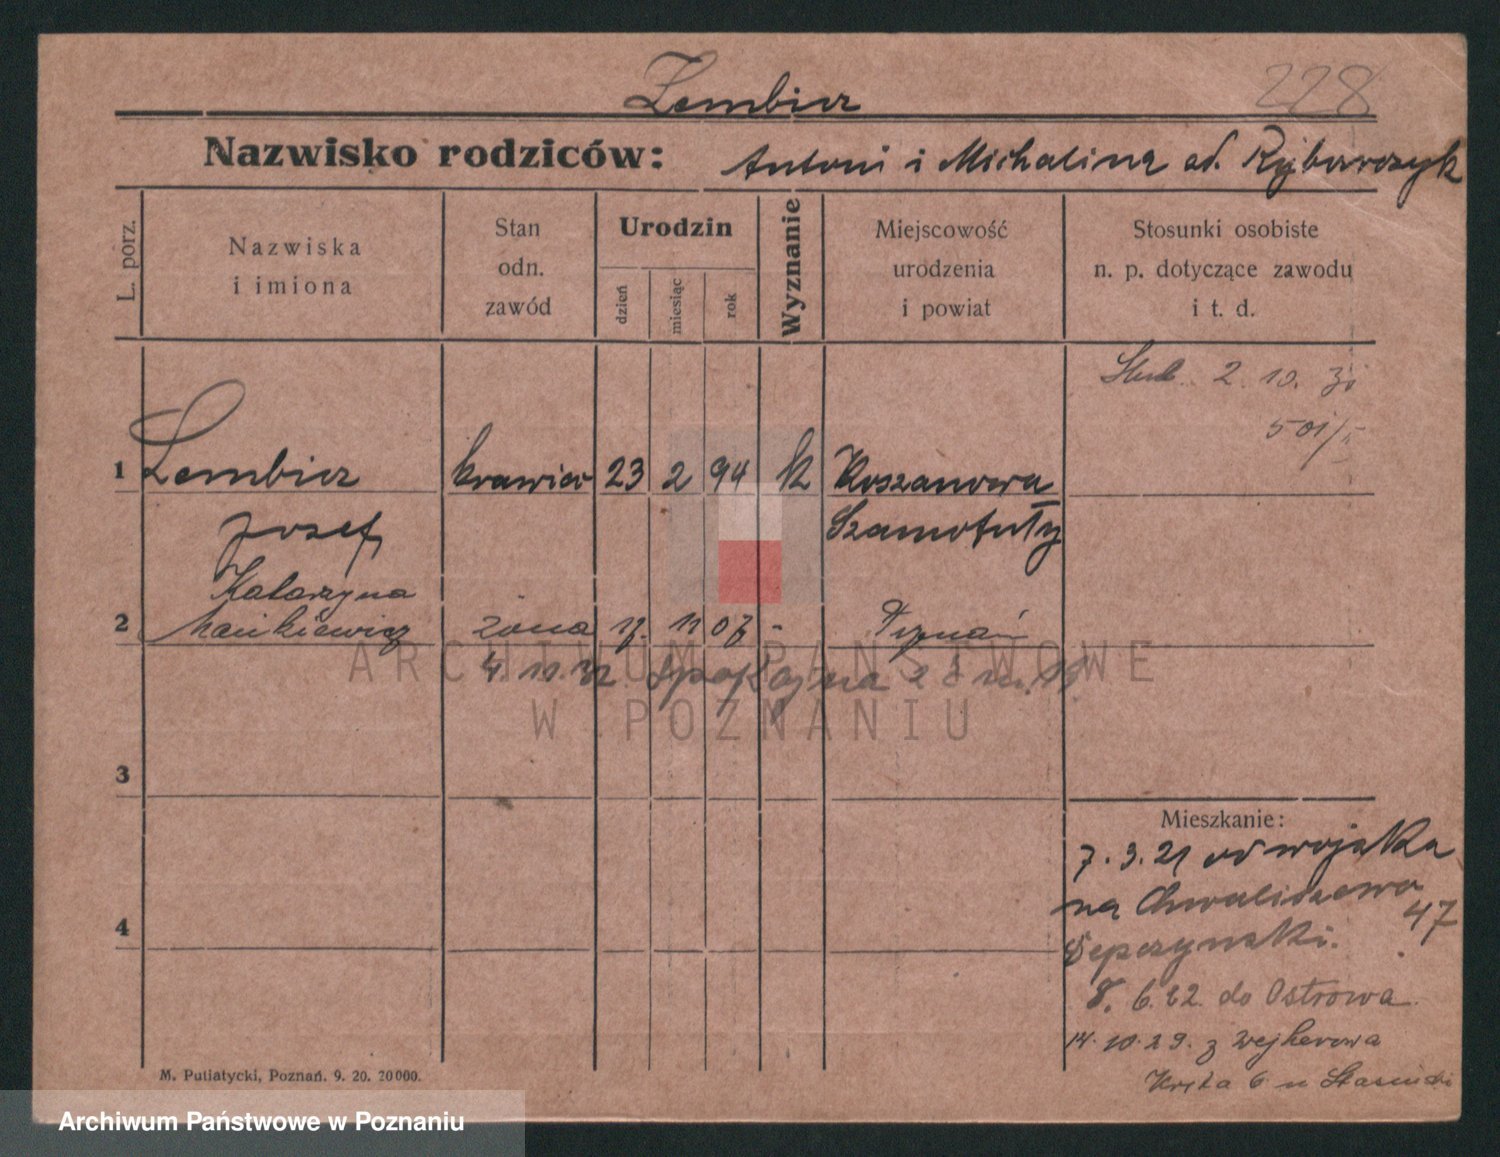 Lembicz
228
Nazwisko rodziców: Antoni i Michalina od. Rybarczyk
L. porz.
Nazwiska
i imiona
Stan
odn.
zawód
Urodzin
dzień
miesiąc
rok
Wyznanie
Miejscowość
urodzenia
i powiat
Stosunki osobiste
n. p. dotyczące zawodu
i t. d.
2. 10. 30
501/
1 Lembicz krawiec 23 2 94 k Koszanowa
Józef Szamotuły
Katarzyna
2 żona 17. 11 07 - Poznań
4. 11. 32. Spokojna
3
Mieszkanie:
7. 3. 21 od wojska
na Chwaliszewo
47
4
8. 6. 22. do Ostrowa
14. 10. 29. z Wejherowa
Kręta 6 u
M. Putiatycki, Poznań. 9. 20. 20000.
ARCHIWUM PAŃSTWOWE
W POZNANIU
Archiwum Państwowe w Poznaniu